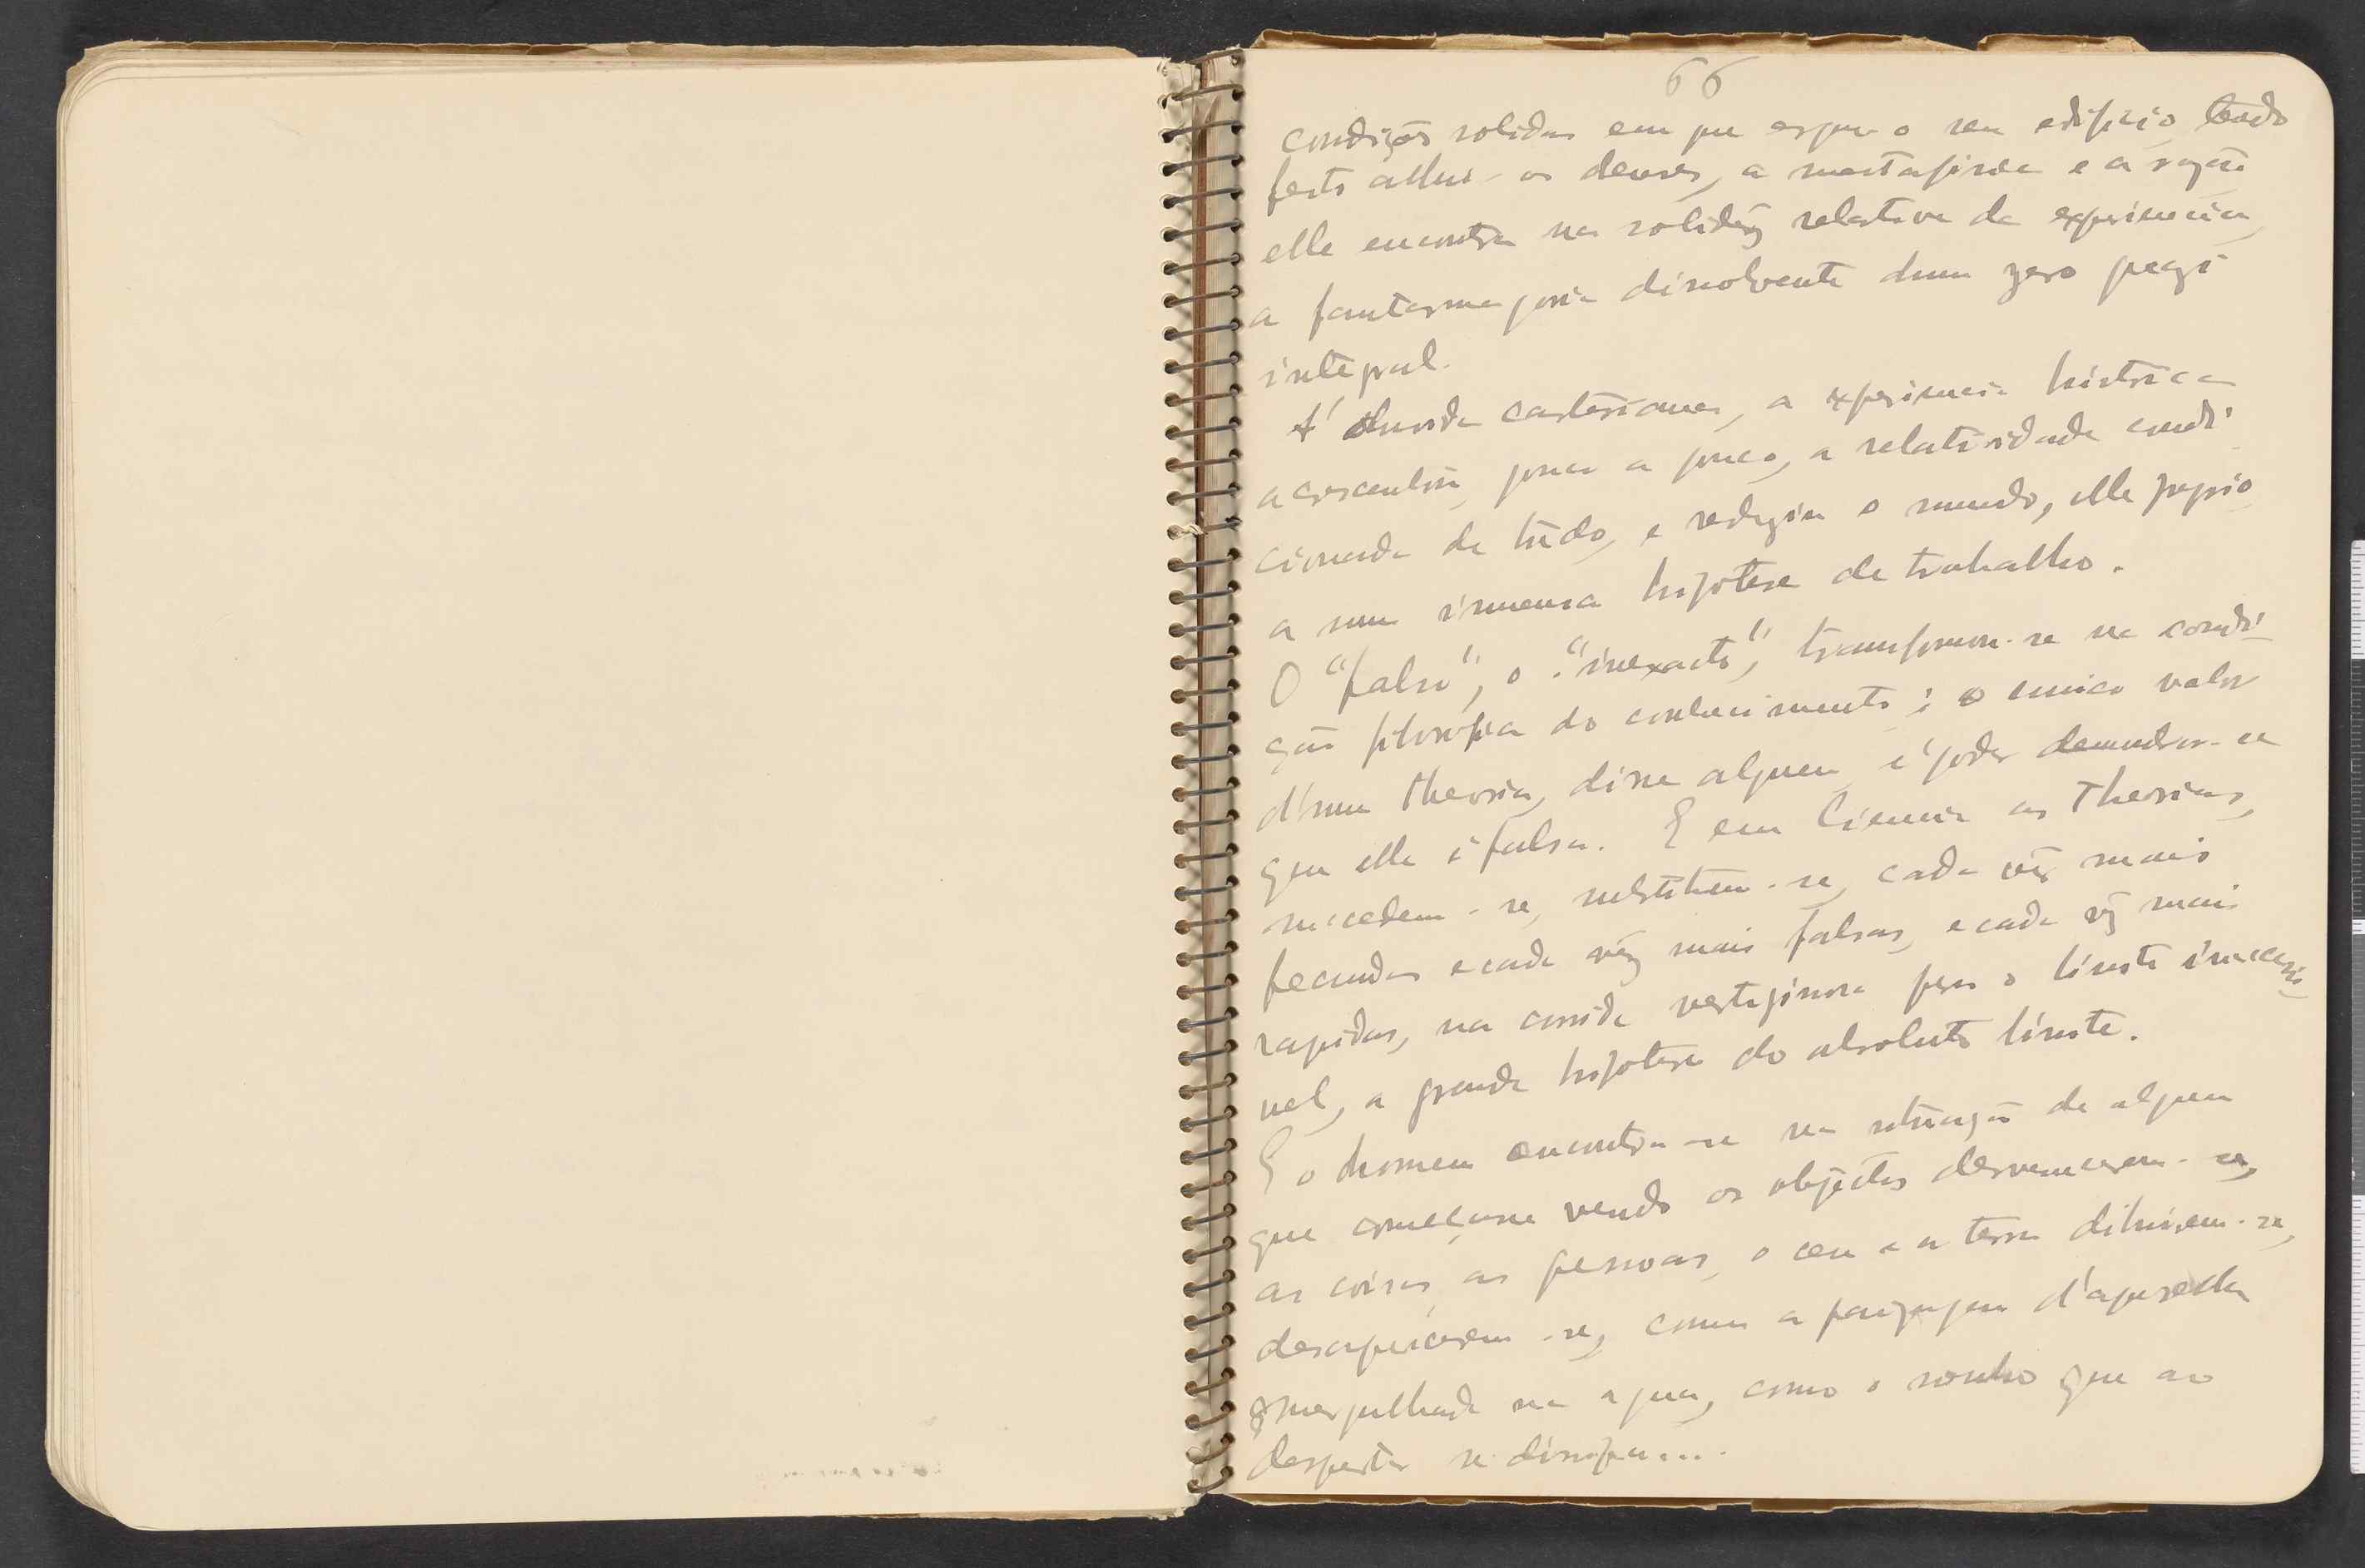 66
condições solidas em que ergue o seu edificio, tendo
feito alluir os deuses, a metafisica e a razão
elle encontra na solidez relativa da experiencia,
a fantasmagoria dissolvente dum zero quazi
integral.
A' duvida cartesiana, a experiencia historica
acrescentou, pouco a pouco, a relatividade condi
cionada de tudo, e reduziu o mundo, elle proprio
a uma immensa hipotese de trabalho.
O "falso", o "inexacto", transformou-se na condi
ção filosofica do conhecimento; o unico valor
d'uma theoria, disse alguem, é poder demonstrar-se
que ella é falsa. E em Ciencia as Theorias,
succedem-se, substituem-se, cada vez mais
fecundas e cada vez mais falsas, e cada vez mais
rapidas, na corrida vertiginosa para o limite inaccessi
vel, a grande hipotese do absoluto limite.
E o homem encontra-se na situação de alguem
que começasse vendo os objectos desvanecerem-se,
as coisas, as pessoas, o ceu e a terra diluirem-se,
desaparecerem-se, como a paizagem d'aguarela
mergulhada na agua, como o sonho que ao
despertar se dissipa....